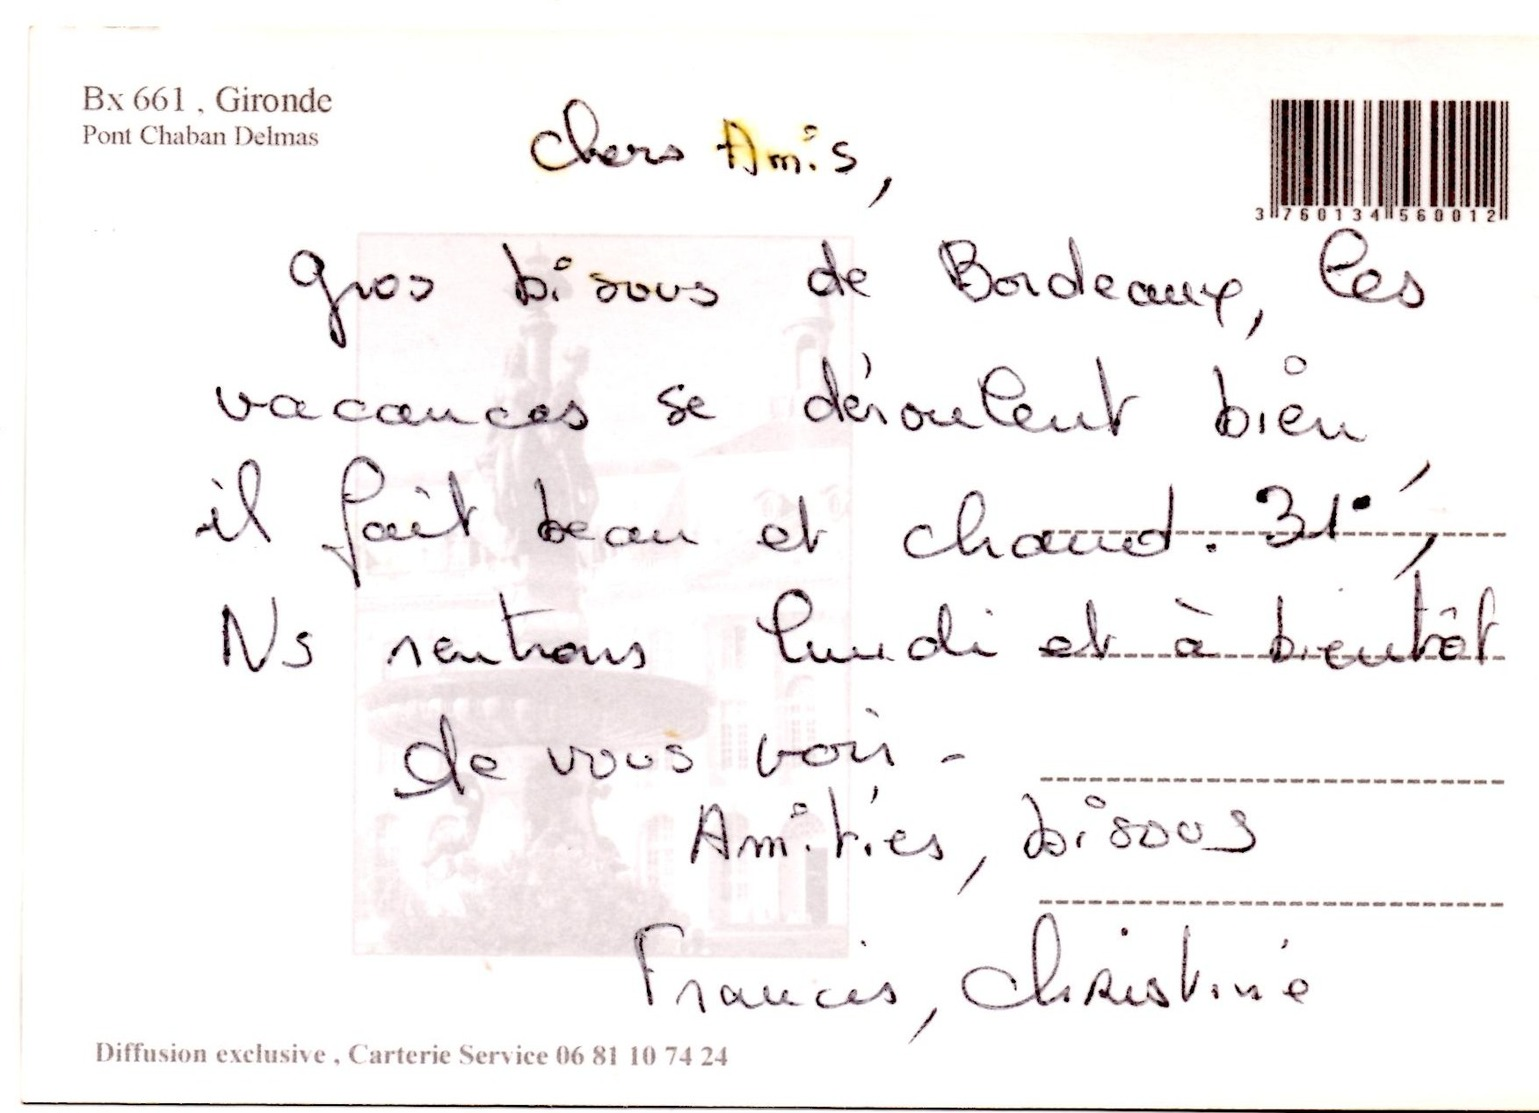 Bx 661 , Gironde
Pont Chaban Delmas
3 760134 560012
Chers Amis,
Gros bisous de Bordeaux, les
vacances se déroulent bien,
il fait beau et chaud. 31°,
Ns rentrons lundi et à bientôt
de vous voir -
Amitiés, bisous
Francis, Christine
Diffusion exclusive , Carterie Service 06 81 10 74 24